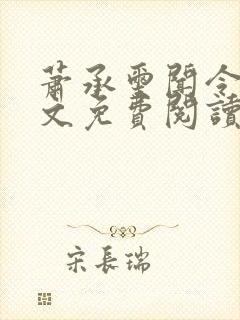 蕭承墨聞令
文免費閱讀
宋長瑞